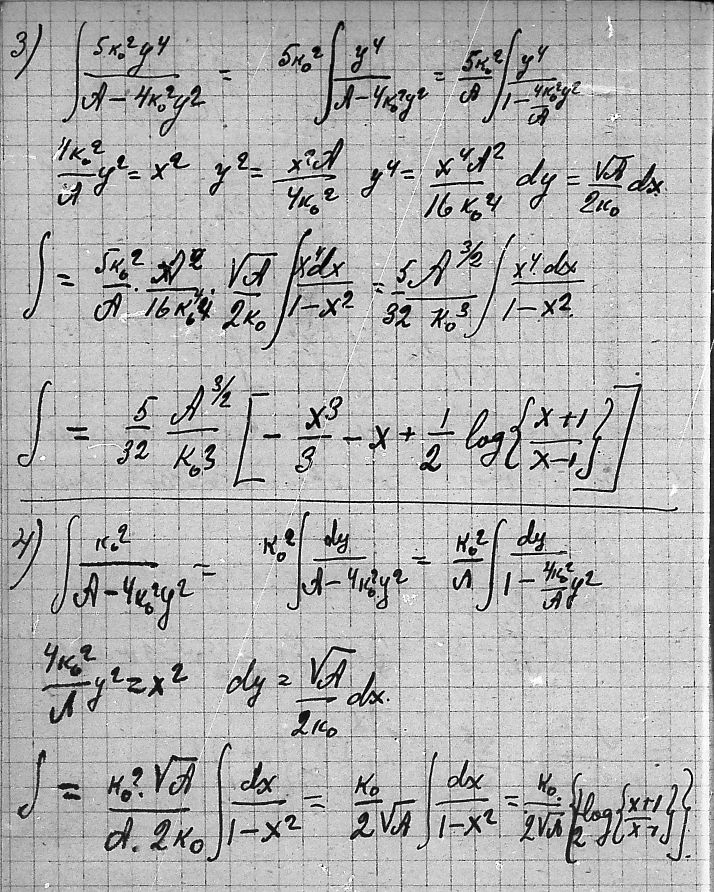 3) ∫ 5κ₀²y⁴/(A − 4κ₀²y²) = 5κ₀² ∫ y⁴/(A − 4κ₀²y²) = 5κ₀²/A ∫ y⁴/(1 − (4κ₀²/A)y²)
(4κ₀²/A)y² = x²   y² = x²A/(4κ₀²)   y⁴ = x⁴A²/(16κ₀⁴)   dy = (√A/2κ₀)dx
∫ = 5κ₀²/A · A²/(16κ₀⁴) · √A/(2κ₀) ∫ x⁴dx/(1−x²) = (5/32) A^{3/2}/κ₀³ ∫ x⁴dx/(1−x²)
∫ = (5/32) A^{3/2}/κ₀³ [ − x³/3 − x + (1/2) log{(x+1)/(x−1)} ]
4) ∫ κ₀²/(A − 4κ₀²y²) = κ₀² ∫ dy/(A − 4κ₀²y²) = κ₀²/A ∫ dy/(1 − (4κ₀²/A)y²)
(4κ₀²/A)y² = x²   dy = (√A/2κ₀)dx.
∫ = (κ₀²·√A)/(A·2κ₀) ∫ dx/(1−x²) = κ₀/(2√A) ∫ dx/(1−x²) = κ₀/(2√A) {(1/2) log{(x+1)/(x−1)}}.